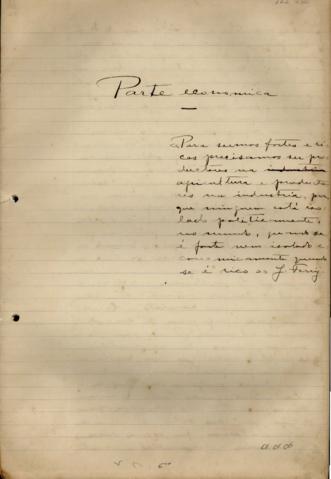 Parte economica
Para sermos fortes e ri-
cos precisamos ser pro-
ductores na industria
agricultura e producto-
res na industria, por
que ninguem está iso-
lado politicamente,
no mundo, quando se
é forte nem isolado e-
conomicamente quando
se é rico J. Ferry